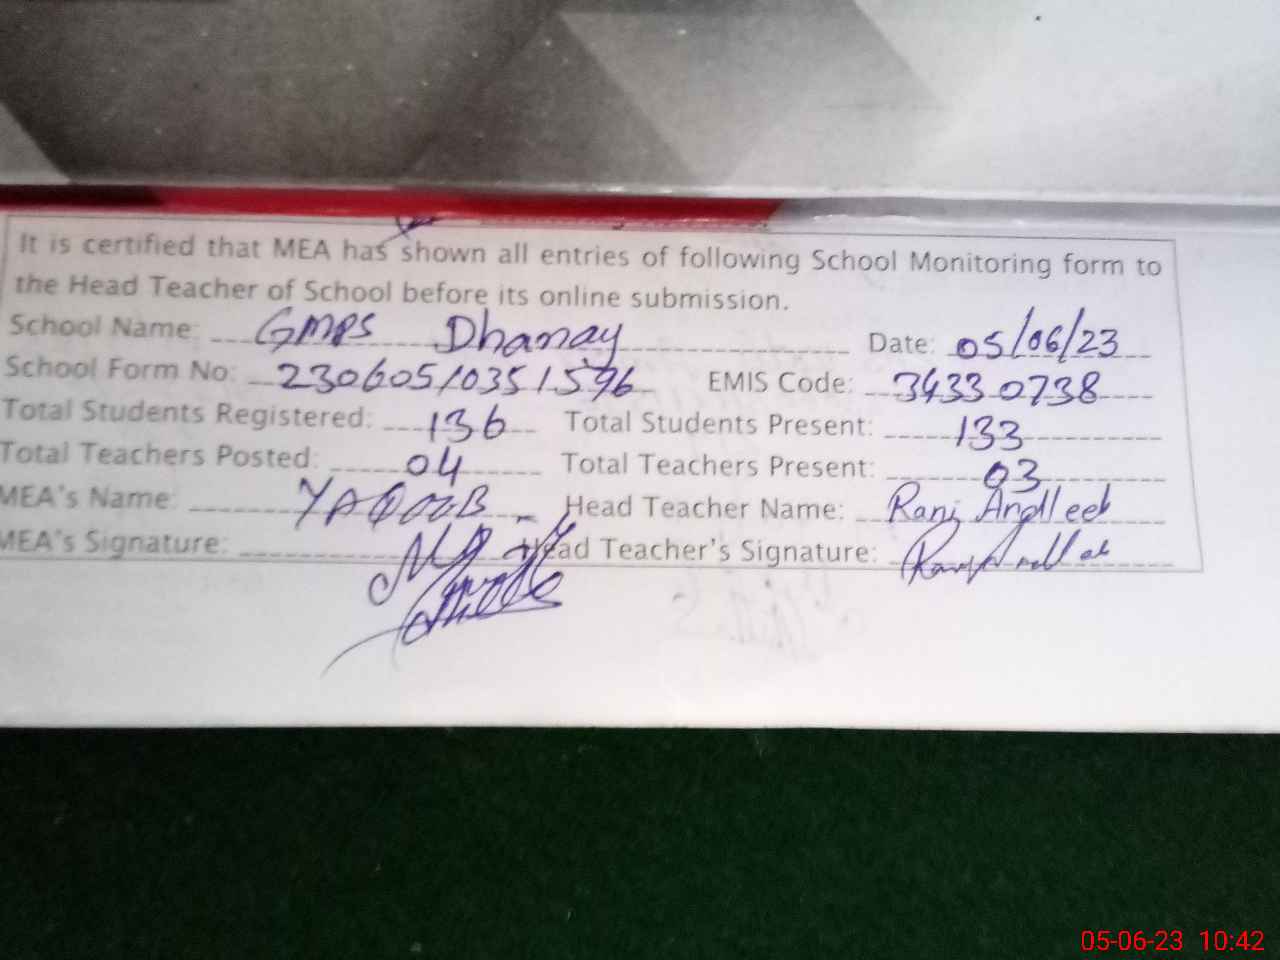 It is certified that MEA has shown all entries of following School Monitoring form to
the Head Teacher of School before its online submission.
School Name: GMPS Dhanay Date: 05/06/23
School Form No: 230605/0351596 EMIS Code: 34330738
Total Students Registered: 136 Total Students Present: 133
Total Teachers Posted: 04 Total Teachers Present: 03
MEA's Name: YAQOOB Head Teacher Name: Rani Andleeb
MEA's Signature: Head Teacher's Signature:
05-06-23 10:42